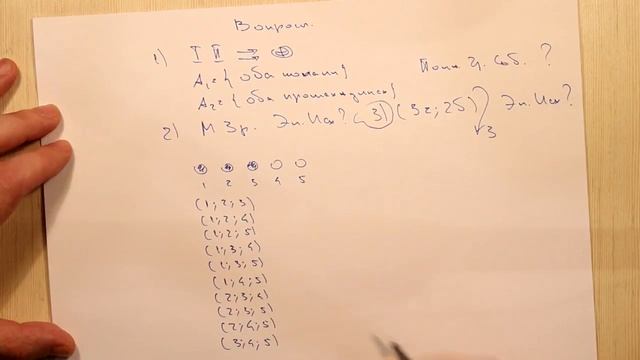 Вопросы.
1) I II
A₁ = { оба попали }
Полн. г. соб. ?
A₂ = { оба промахнулись }
2) М 3р. Эл. Исх? (3) (3г; 2б) 3 Эл. Исх?
1 2 3 4 5
(1; 2; 3)
(1; 2; 4)
(1; 2; 5)
(1; 3; 4)
(1; 3; 5)
(1; 4; 5)
(2; 3; 4)
(2; 3; 5)
(2; 4; 5)
(3; 4; 5)